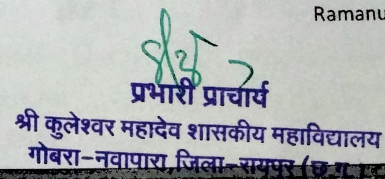 Ramanu
प्रभारी प्राचार्य
श्री कुलेश्वर महादेव शासकीय महाविद्यालय
गोबरा-नवापारा,जिला-रायपुर (छ.ग.)